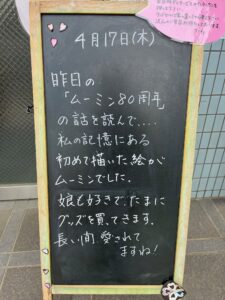 4月17日(木)
昨日の
「ムーミン80周年
の話を読んで....
私の記憶にある
初めて描いた絵が
ムーミンでした.
娘も好きで、たまに
グッズを買ってきます.
長い間、愛されて
ますね!